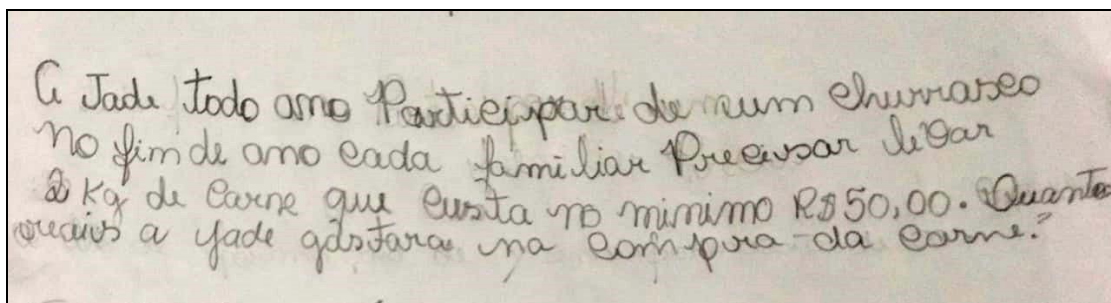 A Jade todo ano Participar de num churrasco
No fim de ano cada familiar Precisar levar
2 Kg de carne que custa no minimo R$50,00. Quanto
reais a jade gastara na compra da carne?